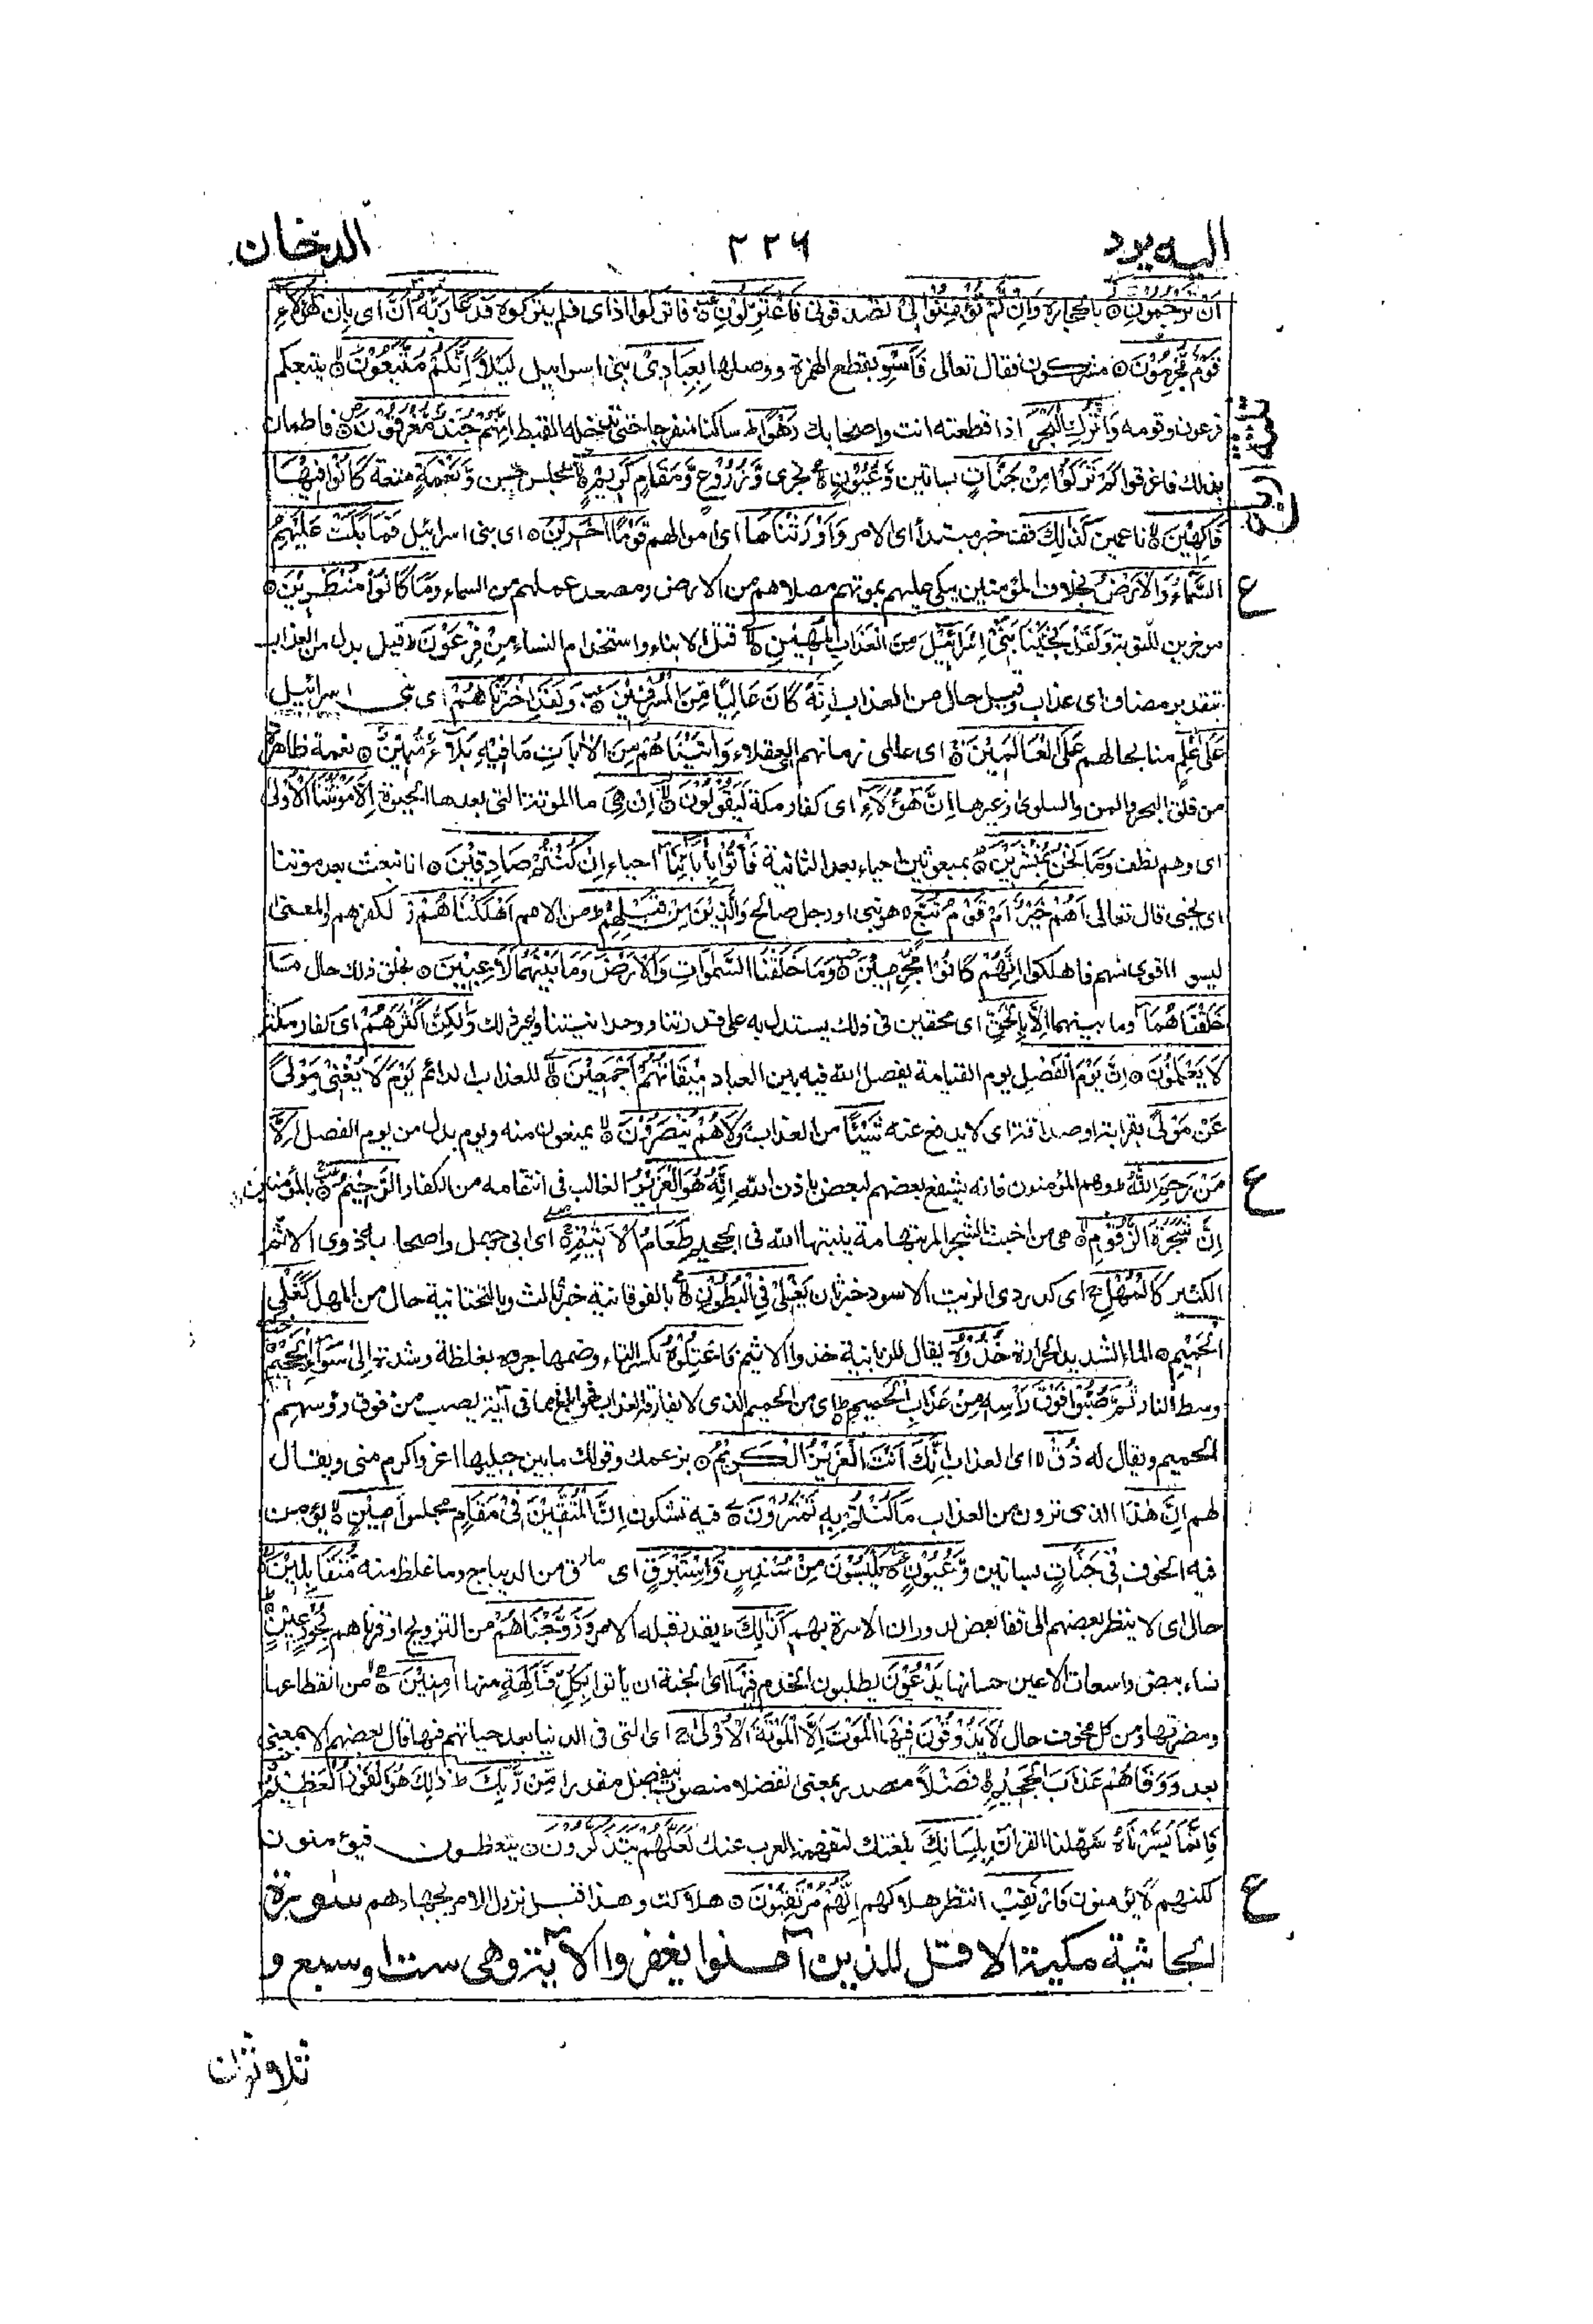 اليه يرد ٢٢٦ الدخان
اَنْ تَرْجُمُوْنِ ۝ بالحجارة وَاِنْ لَّمْ تُؤْمِنُوْا لِيْ تصدقوني فَاعْتَزِلُوْنِ ۝ فاتركوا اذاي فلم يتركوه فَدَعَا رَبَّهٗ اَنَّ اى بان هٰؤُلَاءِ
قَوْمٌ مُّجْرِمُوْنَ ۝ مشركون فقال تعالى فَاَسْرِ بقطع الهمزة ووصلها بِعِبَادِيْ بني اسرايل لَيْلًا اِنَّكُمْ مُّتَّبَعُوْنَ ۝ يتبعكم
فرعون وقومه وَاتْرُكِ الْبَحْرَ اذا قطعته انت واصحابك رَهْوًا ط ساكنا منفرجا حتى تدخله القبط اِنَّهُمْ جُنْدٌ مُّغْرَقُوْنَ ۝ فاطمان
بذلك فاغرقوا كَمْ تَرَكُوْا مِنْ جَنّٰتٍ بساتين وَّعُيُوْنٍ ۝ تجرى وَّزُرُوْعٍ وَّمَقَامٍ كَرِيْمٍ ۝ مجلس حسن وَّنَعْمَةٍ متعة كَانُوْا فِيْهَا
فَاكِهِيْنَ ۝ ناعمين كَذٰلِكَ قف خبر مبتدأ اى الامر وَاَوْرَثْنَاهَا اى اموالهم قَوْمًا اٰخَرِيْنَ ۝ اى بني اسرائيل فَمَا بَكَتْ عَلَيْهِمُ
السَّمَاءُ وَالْاَرْضُ بخلاف المؤمنين يبكى عليهم بموتهم مصلاهم من الارض ومصعد عملهم من السماء وَمَا كَانُوْا مُنْظَرِيْنَ ۝
ع
موخرين للتوبة وَلَقَدْ نَجَّيْنَا بَنِيْ اِسْرَائِيْلَ مِنَ الْعَذَابِ الْمُهِيْنِ ۝ قتل الابناء واستخدام النساء مِنْ فِرْعَوْنَ ط قيل بدل من العذاب
بتقدير مضاف اى عذاب وقيل حال من العذاب اِنَّهٗ كَانَ عَالِيًا مِّنَ الْمُسْرِفِيْنَ ۝ وَلَقَدِ اخْتَرْنَاهُمْ اى بني اسرائيل
عَلٰى عِلْمٍ منا بحالهم عَلَى الْعَالَمِيْنَ ۝ اى عالمى زمانهم العقلاء وَاٰتَيْنَاهُمْ مِنَ الْاٰيَاتِ مَا فِيْهِ بَلَاءٌ مُّبِيْنٌ ۝ نعمة ظاهرة
من فلق البحر والمن والسلوى وغيرها اِنَّ هٰؤُلَاءِ اى كفار مكة لَيَقُوْلُوْنَ ۝ اِنْ هِيَ ما الموتة التى بعدها الحيوة اِلَّا مَوْتَتُنَا الْاُوْلٰى
اى وهم نطف وَمَا نَحْنُ بِمُنْشَرِيْنَ ۝ بمبعوثين احياء بعد الثانية فَأْتُوْا بِاٰبَائِنَا احياء اِنْ كُنْتُمْ صَادِقِيْنَ ۝ انا نبعث بعد موتتنا
اى نحيى قال تعالى اَهُمْ خَيْرٌ اَمْ قَوْمُ تُبَّعٍ هو نبي او رجل صالح وَّالَّذِيْنَ مِنْ قَبْلِهِمْ ط من الامم اَهْلَكْنَاهُمْ ز لكفرهم والمعنى
ليسوا اقوى منهم فاهلكوا اِنَّهُمْ كَانُوْا مُجْرِمِيْنَ ۝ وَمَا خَلَقْنَا السَّمٰوَاتِ وَالْاَرْضَ وَمَا بَيْنَهُمَا لَاعِبِيْنَ ۝ بخلق ذلك حال مَا
خَلَقْنَاهُمَا وما بينهما اِلَّا بِالْحَقِّ اى محقين في ذلك يستدل به على قدرتنا ووحدانيتنا وغير ذلك وَلٰكِنَّ اَكْثَرَهُمْ اى كفار مكة
لَا يَعْلَمُوْنَ ۝ اِنَّ يَوْمَ الْفَصْلِ يوم القيامة يفصل الله فيه بين العباد مِيْقَاتُهُمْ اَجْمَعِيْنَ ۝ للعذاب الدائم يَوْمَ لَا يُغْنِيْ مَوْلًى
عَنْ مَّوْلًى بقرابة او صداقة اى لا يدفع عنه شَيْئًا من العذاب وَّلَا هُمْ يُنْصَرُوْنَ ۝ يمنعون منه ويوم بدل من يوم الفصل اِلَّا
مَنْ رَّحِمَ اللهُ ط وهم المؤمنون فانه يشفع بعضهم لبعض باذن الله اِنَّهٗ هُوَ الْعَزِيْزُ الغالب في انتقامه من الكفار الرَّحِيْمُ ۝ بالمؤمنين
ع
اِنَّ شَجَرَةَ الزَّقُّوْمِ ۝ هى من اخبث الشجر المر بتهامة ينبتها الله في الجحيم طَعَامُ الْاَثِيْمِ ۝ اى ابي جهل واصحابه ذوى الاثم
الكثير كَالْمُهْلِ ج اى كدردى الزيت الاسود خبر ثان يَغْلِيْ فِي الْبُطُوْنِ ۝ بالفوقانية خبر ثالث وبالتحتانية حال من المهل كَغَلْيِ
الْحَمِيْمِ ۝ الماء الشديد الحرارة خُذُوْهُ يقال للزبانية خذوا الاثيم فَاعْتِلُوْهُ بكسر التاء وضمها جروه بغلظة وشدة اِلٰى سَوَاءِ الْجَحِيْمِ
وسط النار ثُمَّ صُبُّوْا فَوْقَ رَأْسِهٖ مِنْ عَذَابِ الْحَمِيْمِ ط اى من الحميم الذى لا يفارقه العذاب فهو ابلغ مما في آية يصب من فوق رؤسهم
الحميم ويقال له ذُقْ اى العذاب اِنَّكَ اَنْتَ الْعَزِيْزُ الْكَرِيْمُ ۝ بزعمك وقولك ما بين جبليها اعز واكرم منى ويقال
لهم اِنَّ هٰذَا الذى ترون من العذاب مَا كُنْتُمْ بِهٖ تَمْتَرُوْنَ ۝ فيه تشكون اِنَّ الْمُتَّقِيْنَ فِيْ مَقَامٍ مجلس اَمِيْنٍ ۝ يؤمن
فيه الخوف فِيْ جَنّٰتٍ بساتين وَّعُيُوْنٍ ۝ يَلْبَسُوْنَ مِنْ سُنْدُسٍ وَّاِسْتَبْرَقٍ اى مارق من الديباج وما غلظ منه مُتَقَابِلِيْنَ ۝
حال اى لا ينظر بعضهم الى قفا بعض لدوران الاسرة بهم كَذٰلِكَ يقدر قبله الامر وَزَوَّجْنَاهُمْ من التزويج او قرناهم بِحُوْرٍ عِيْنٍ
نساء بيض واسعات الاعين حسانها يَدْعُوْنَ يطلبون الخدم فِيْهَا اى الجنة ان يأتوا بِكُلِّ فَاكِهَةٍ منها اٰمِنِيْنَ ۝ من انقطاعها
ومضرتها ومن كل مخوف حال لَا يَذُوْقُوْنَ فِيْهَا الْمَوْتَ اِلَّا الْمَوْتَةَ الْاُوْلٰى ج اى التى في الدنيا بعد حياتهم فيها قال بعضهم الا بمعنى
بعد وَوَقَاهُمْ عَذَابَ الْجَحِيْمِ ۝ فَضْلًا مصدر بمعنى تفضلا منصوب بتفضل مقدرا مِّنْ رَّبِّكَ ط ذٰلِكَ هُوَ الْفَوْزُ الْعَظِيْمُ
فَاِنَّمَا يَسَّرْنَاهُ سهلنا القران بِلِسَانِكَ بلغتك لتفهمه العرب عنك لَعَلَّهُمْ يَتَذَكَّرُوْنَ ۝ يتعظون فيؤمنون
لكنهم لا يؤمنون فَارْتَقِبْ انتظر هلاكهم اِنَّهُمْ مُّرْتَقِبُوْنَ ۝ هلاكك وهذا قبل نزول الامر بجهادهم سورة
ع
الجاثية مكية الا قل للذين آمنوا يغفروا الآية وهى ست او سبع و
ثلاثون